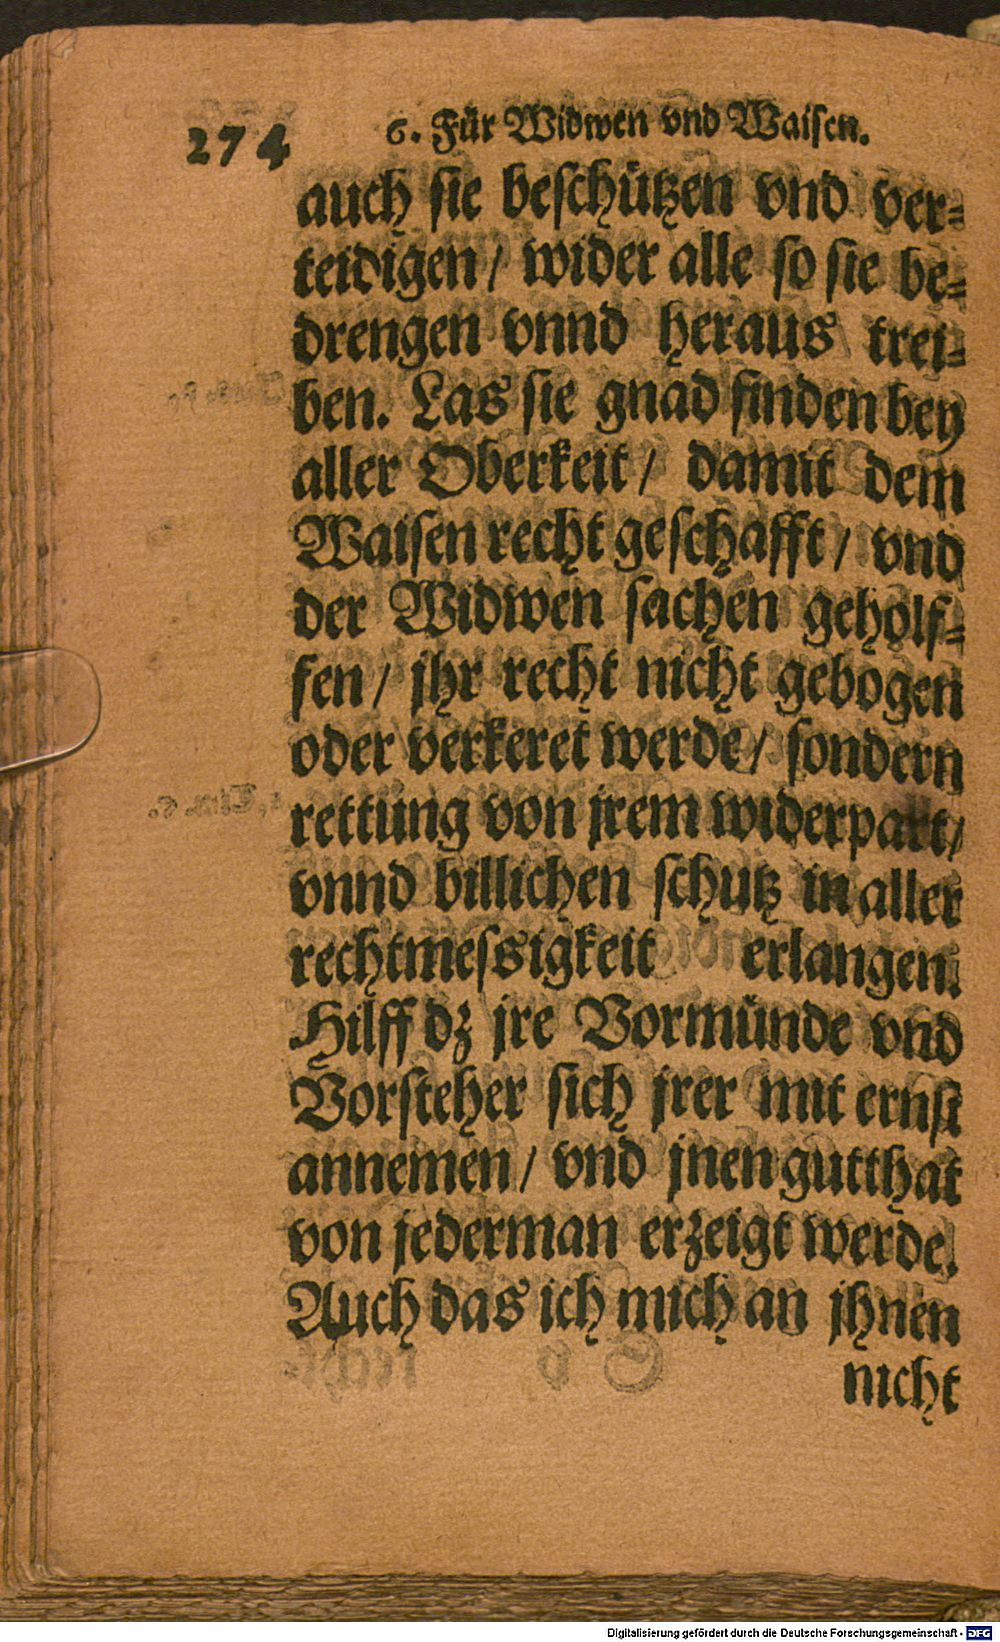 274
6. Für Widwen vnd Waisen.
auch sie beschützen vnd ver-
teidigen / wider alle so sie be-
drengen vnnd heraus trei-
ben. Las sie gnad finden bey
aller Oberkeit / damit dem
Waisen recht geschafft / vnd
der Widwen sachen geholf-
fen / jhr recht nicht gebogen
oder verkeret werde / sondern
rettung von jrem widerpart /
vnnd billichen schutz in aller
rechtmessigkeit erlangen.
Hilff dz jre Vormünde vnd
Vorsteher sich jrer mit ernst
annemen / vnd jnen gutthat
von jederman erzeigt werde.
Auch das ich mich an jhnen
nicht
Digitalisierung gefördert durch die Deutsche Forschungsgemeinschaft - DFG